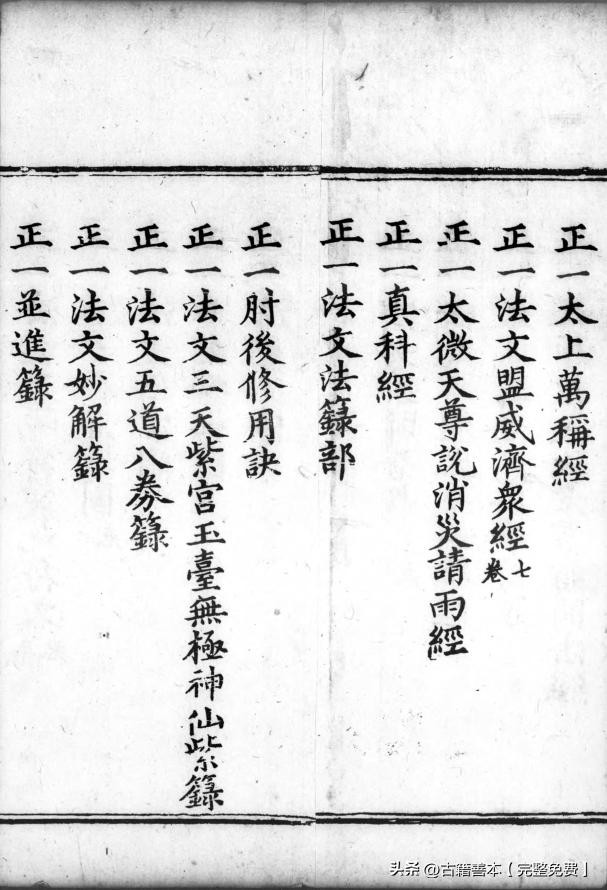 正一太上萬稱經
正一法文盟威濟衆經七卷
正一太微天尊說消災請雨經
正一真科經
正一法文法籙部
正一肘後修用訣
正一法文三天紫宫玉臺無極神仙紫籙
正一法文五道八券籙
正一法文妙解籙
正一並進籙
头条 @古籍善本【完整免费】